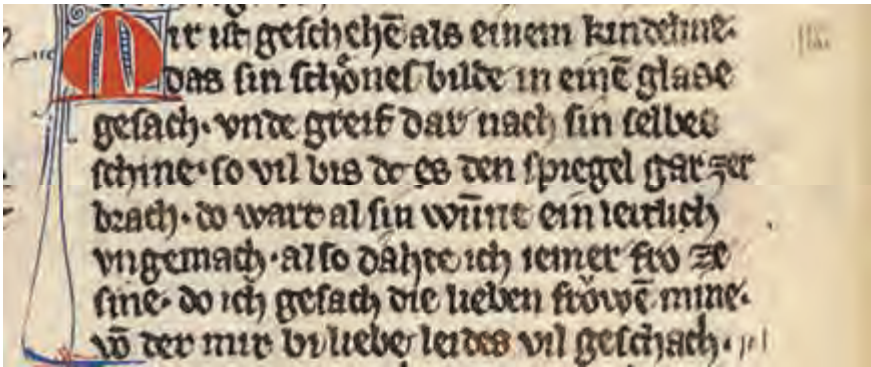 Mir iſt geſchehē als einem kindeline·
das ſin ſchoͤneſ bilde in einē glaſe
geſach· vnde greif dar nach ſin ſelbes
ſchine· ſo vil bis dc es den ſpiegel gar zer
brach· do wart al ſin wūne ein leitlich
vngemach· alſo dahte ich iemer fro ze
ſine· do ich geſach die lieben froͮwē mine·
vō der mir bi liebe leides vil geſchach·